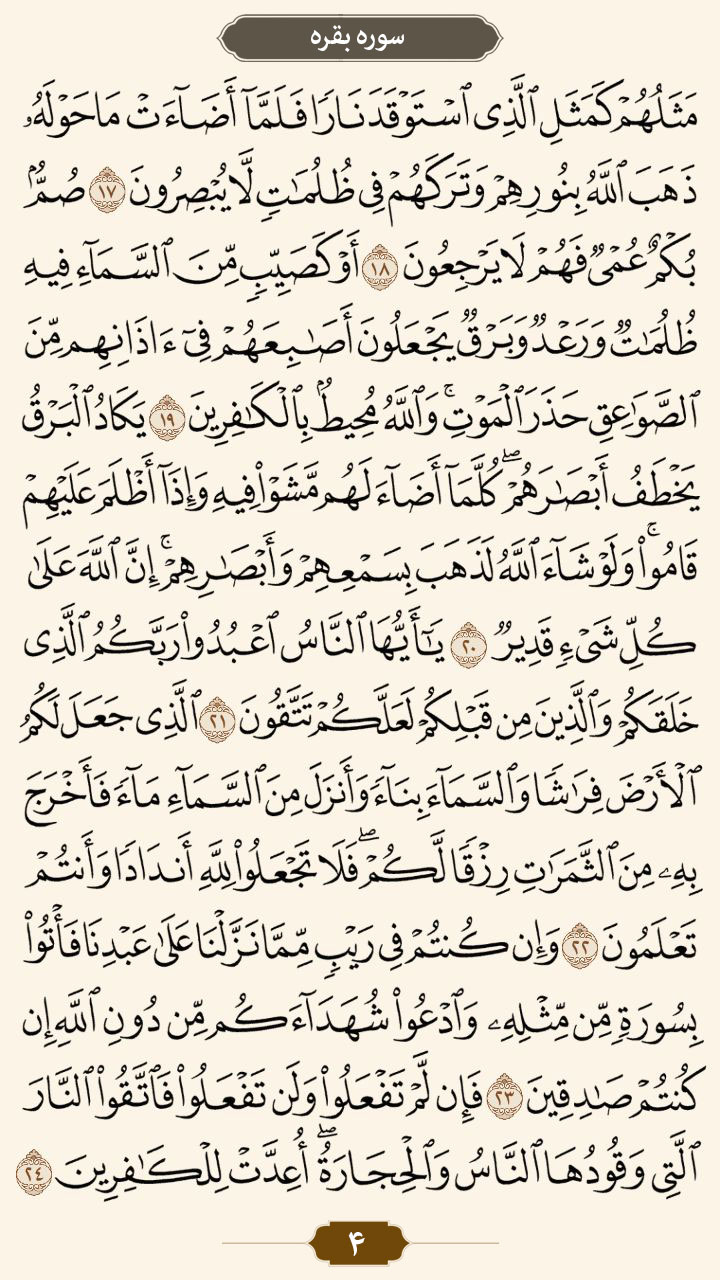 سوره بقره
مَثَلُهُمۡ كَمَثَلِ ٱلَّذِی ٱسۡتَوۡقَدَ نَارٗا فَلَمَّآ أَضَآءَتۡ مَا حَوۡلَهُۥ
ذَهَبَ ٱللَّهُ بِنُورِهِمۡ وَتَرَكَهُمۡ فِی ظُلُمَٰتٖ لَّا يُبۡصِرُونَ ١٧ صُمُّۢ
بُكۡمٌ عُمۡیٞ فَهُمۡ لَا يَرۡجِعُونَ ١٨ أَوۡ كَصَيِّبٖ مِّنَ ٱلسَّمَآءِ فِيهِ
ظُلُمَٰتٞ وَرَعۡدٞ وَبَرۡقٞ يَجۡعَلُونَ أَصَٰبِعَهُمۡ فِیٓ ءَاذَانِهِم مِّنَ
ٱلصَّوَٰعِقِ حَذَرَ ٱلۡمَوۡتِۚ وَٱللَّهُ مُحِيطُۢ بِٱلۡكَٰفِرِينَ ١٩ يَكَادُ ٱلۡبَرۡقُ
يَخۡطَفُ أَبۡصَٰرَهُمۡۖ كُلَّمَآ أَضَآءَ لَهُم مَّشَوۡاْ فِيهِ وَإِذَآ أَظۡلَمَ عَلَيۡهِمۡ
قَامُواْۚ وَلَوۡ شَآءَ ٱللَّهُ لَذَهَبَ بِسَمۡعِهِمۡ وَأَبۡصَٰرِهِمۡۚ إِنَّ ٱللَّهَ عَلَىٰ
كُلِّ شَیۡءٖ قَدِيرٞ ٢٠ يَٰٓأَيُّهَا ٱلنَّاسُ ٱعۡبُدُواْ رَبَّكُمُ ٱلَّذِی
خَلَقَكُمۡ وَٱلَّذِينَ مِن قَبۡلِكُمۡ لَعَلَّكُمۡ تَتَّقُونَ ٢١ ٱلَّذِی جَعَلَ لَكُمُ
ٱلۡأَرۡضَ فِرَٰشٗا وَٱلسَّمَآءَ بِنَآءٗ وَأَنزَلَ مِنَ ٱلسَّمَآءِ مَآءٗ فَأَخۡرَجَ
بِهِۦ مِنَ ٱلثَّمَرَٰتِ رِزۡقٗا لَّكُمۡۖ فَلَا تَجۡعَلُواْ لِلَّهِ أَندَادٗا وَأَنتُمۡ
تَعۡلَمُونَ ٢٢ وَإِن كُنتُمۡ فِی رَيۡبٖ مِّمَّا نَزَّلۡنَا عَلَىٰ عَبۡدِنَا فَأۡتُواْ
بِسُورَةٖ مِّن مِّثۡلِهِۦ وَٱدۡعُواْ شُهَدَآءَكُم مِّن دُونِ ٱللَّهِ إِن
كُنتُمۡ صَٰدِقِينَ ٢٣ فَإِن لَّمۡ تَفۡعَلُواْ وَلَن تَفۡعَلُواْ فَٱتَّقُواْ ٱلنَّارَ
ٱلَّتِی وَقُودُهَا ٱلنَّاسُ وَٱلۡحِجَارَةُۖ أُعِدَّتۡ لِلۡكَٰفِرِينَ ٢٤
۴